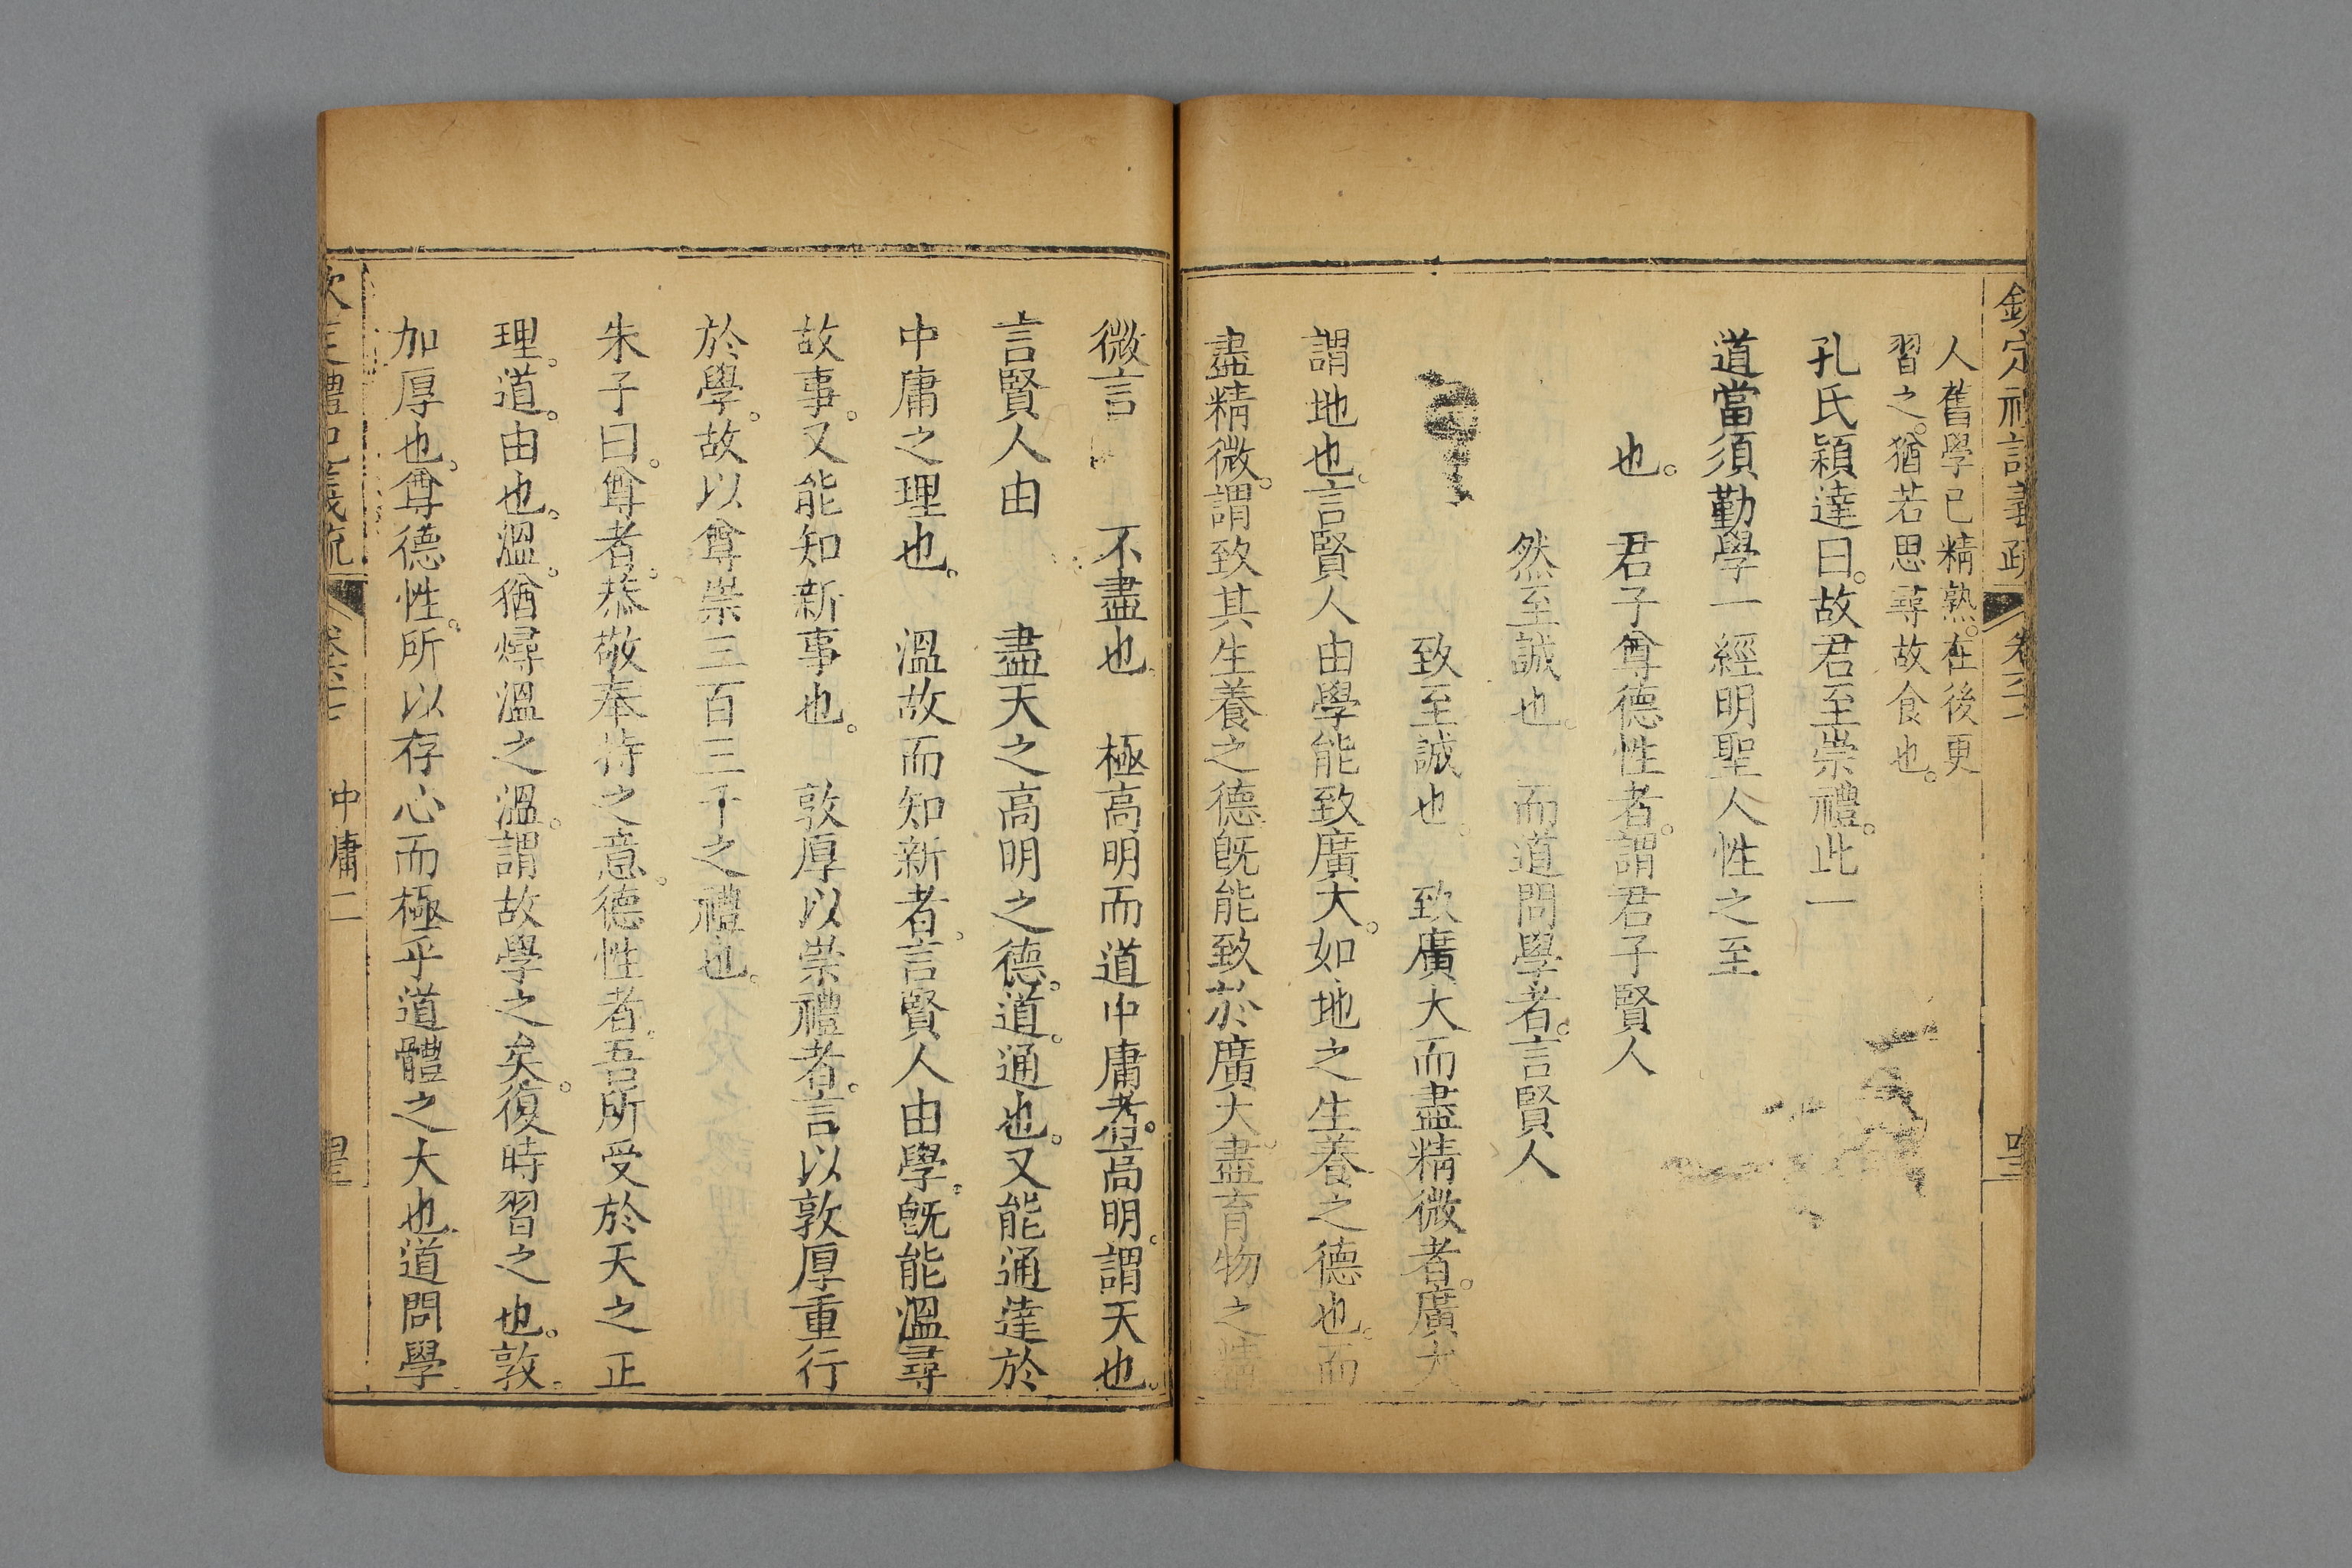 人舊學已精熟。在後更
習之。猶若思尋故食也。
孔氏穎達曰。故君至崇禮。此一
道當須勤學一經明聖人性之至
也。 君子尊德性者。謂君子賢人
然至誠也。 而道問學者。言賢人
致至誠也。 致廣大而盡精微者。廣大
謂地也。言賢人由學能致廣大。如地之生養之德也。而
盡精微。謂致其生養之德旣能致於廣大。盡育物之精
微言 不盡也 極高明而道中庸者。高明。謂天也。
言賢人由 盡天之高明之德。道。通也。又能通達於
中庸之理也。 溫故而知新者。言賢人由學。旣能溫尋
故事。又能知新事也。 敦厚以崇禮者。言以敦厚重行
於學。故以尊崇三百三千之禮也。
朱子曰。尊者。恭敬奉持之意。德性者。吾所受於天之正
理。道。由也。溫。猶燖溫之溫。謂故學之矣。復時習之也。敦。
加厚也。尊德性。所以存心而極乎道體之大也。道問學
中庸二